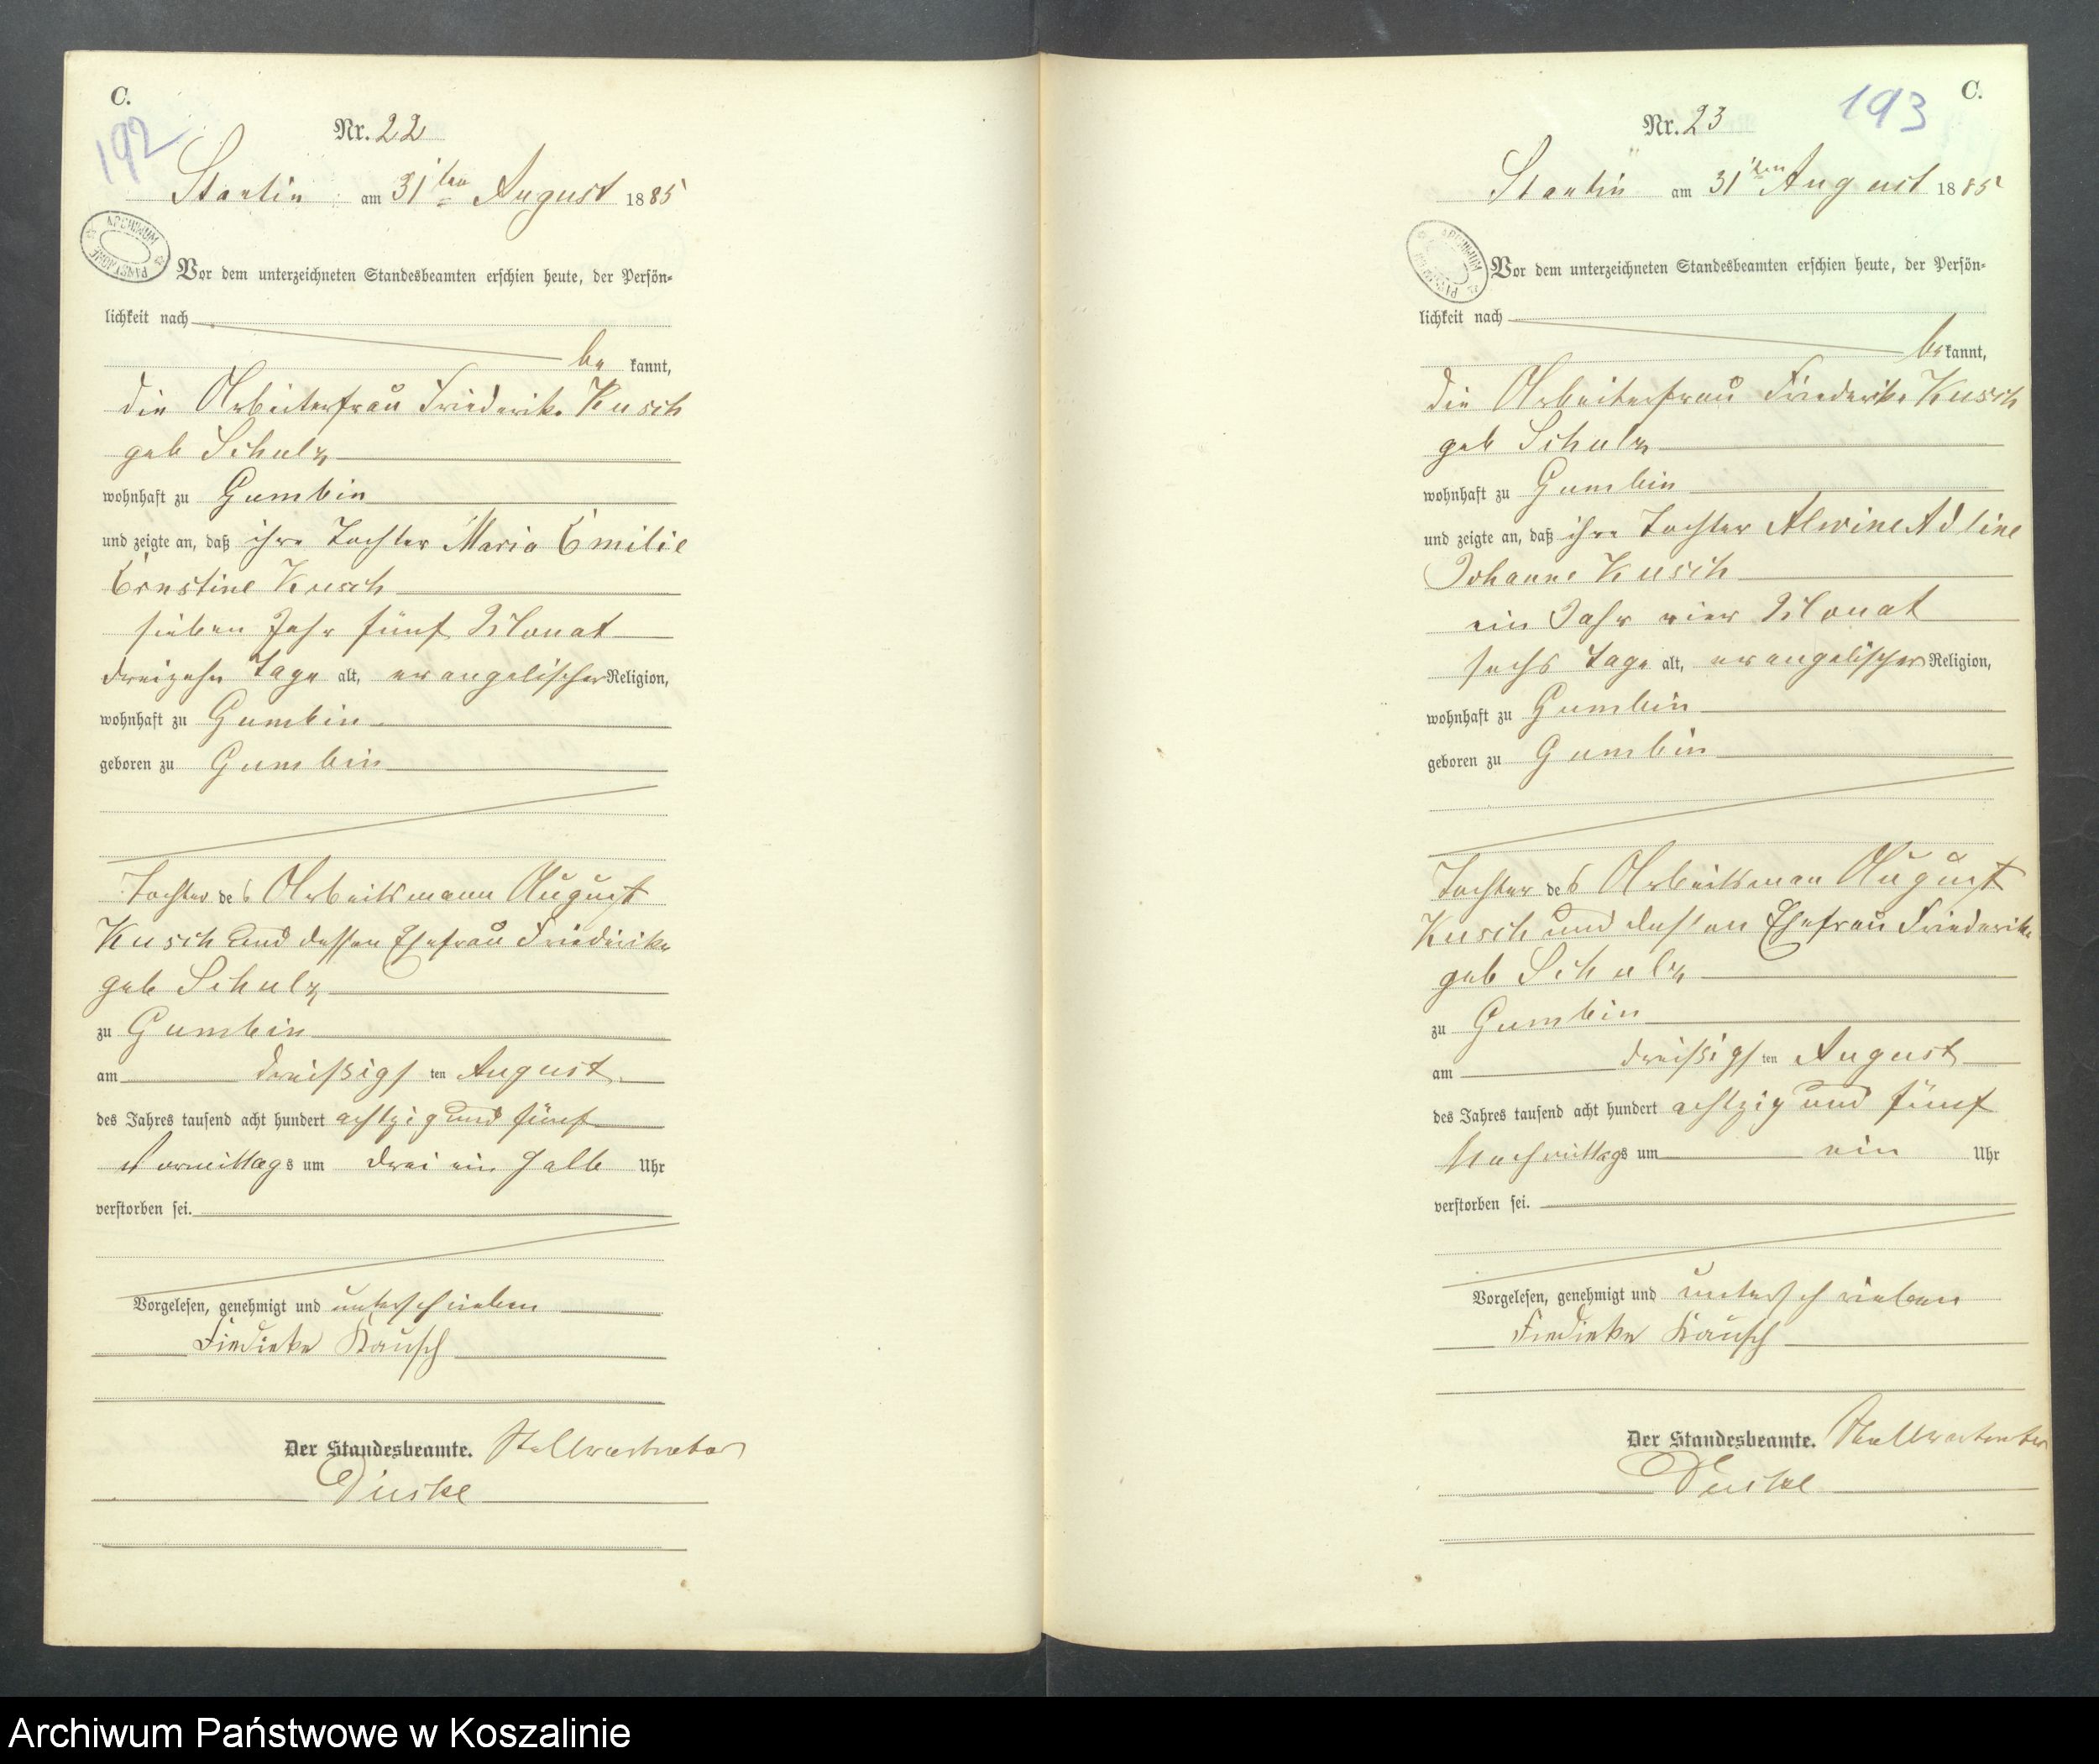 C.
192
Nr. 22
Stantin am 31ten August 1885
ARCHIWUM PAŃSTWOWE
Vor dem unterzeichneten Standesbeamten erschien heute, der Persön-
lichkeit nach
be kannt,
die Arbeiterfrau Friederike Kusch
geb Schulz
wohnhaft zu Gumbin
und zeigte an, daß ihre Tochter Maria Emilie
Ernstine Kusch
sieben Jahr fünf Monat
dreizehn Tage alt, evangelischer Religion,
wohnhaft zu Gumbin
geboren zu Gumbin
Tochter des Arbeitsmann August
Kusch und dessen Ehefrau Friederike
geb Schulz
zu Gumbin
am dreißigs ten August
des Jahres tausend acht hundert achtzig und fünf
Vormittags um drei ein halb Uhr
verstorben sei.
Vorgelesen, genehmigt und unterschrieben
Kausch
Der Standesbeamte. Stellvertreter
C.
193
Nr. 23
Stantin am 31ten August 1885
ARCHIWUM
Vor dem unterzeichneten Standesbeamten erschien heute, der Persön-
lichkeit nach
be kannt,
die Arbeiterfrau Friederike Kusch
geb Schulz
wohnhaft zu Gumbin
und zeigte an, daß ihre Tochter Alwine Adline
Johanne Kusch
ein Jahr vier Monat
sechs Tage alt, evangelischer Religion,
wohnhaft zu Gumbin
geboren zu Gumbin
Tochter des Arbeitsman August
Kusch und dessen Ehefrau Friederike
geb Schulz
zu Gumbin
am dreißigs ten August
des Jahres tausend acht hundert achtzig und fünf
Nachmittags um ein Uhr
verstorben sei.
Vorgelesen, genehmigt und unterschrieben
Kausch
Der Standesbeamte. Stellvertreter
Archiwum Państwowe w Koszalinie